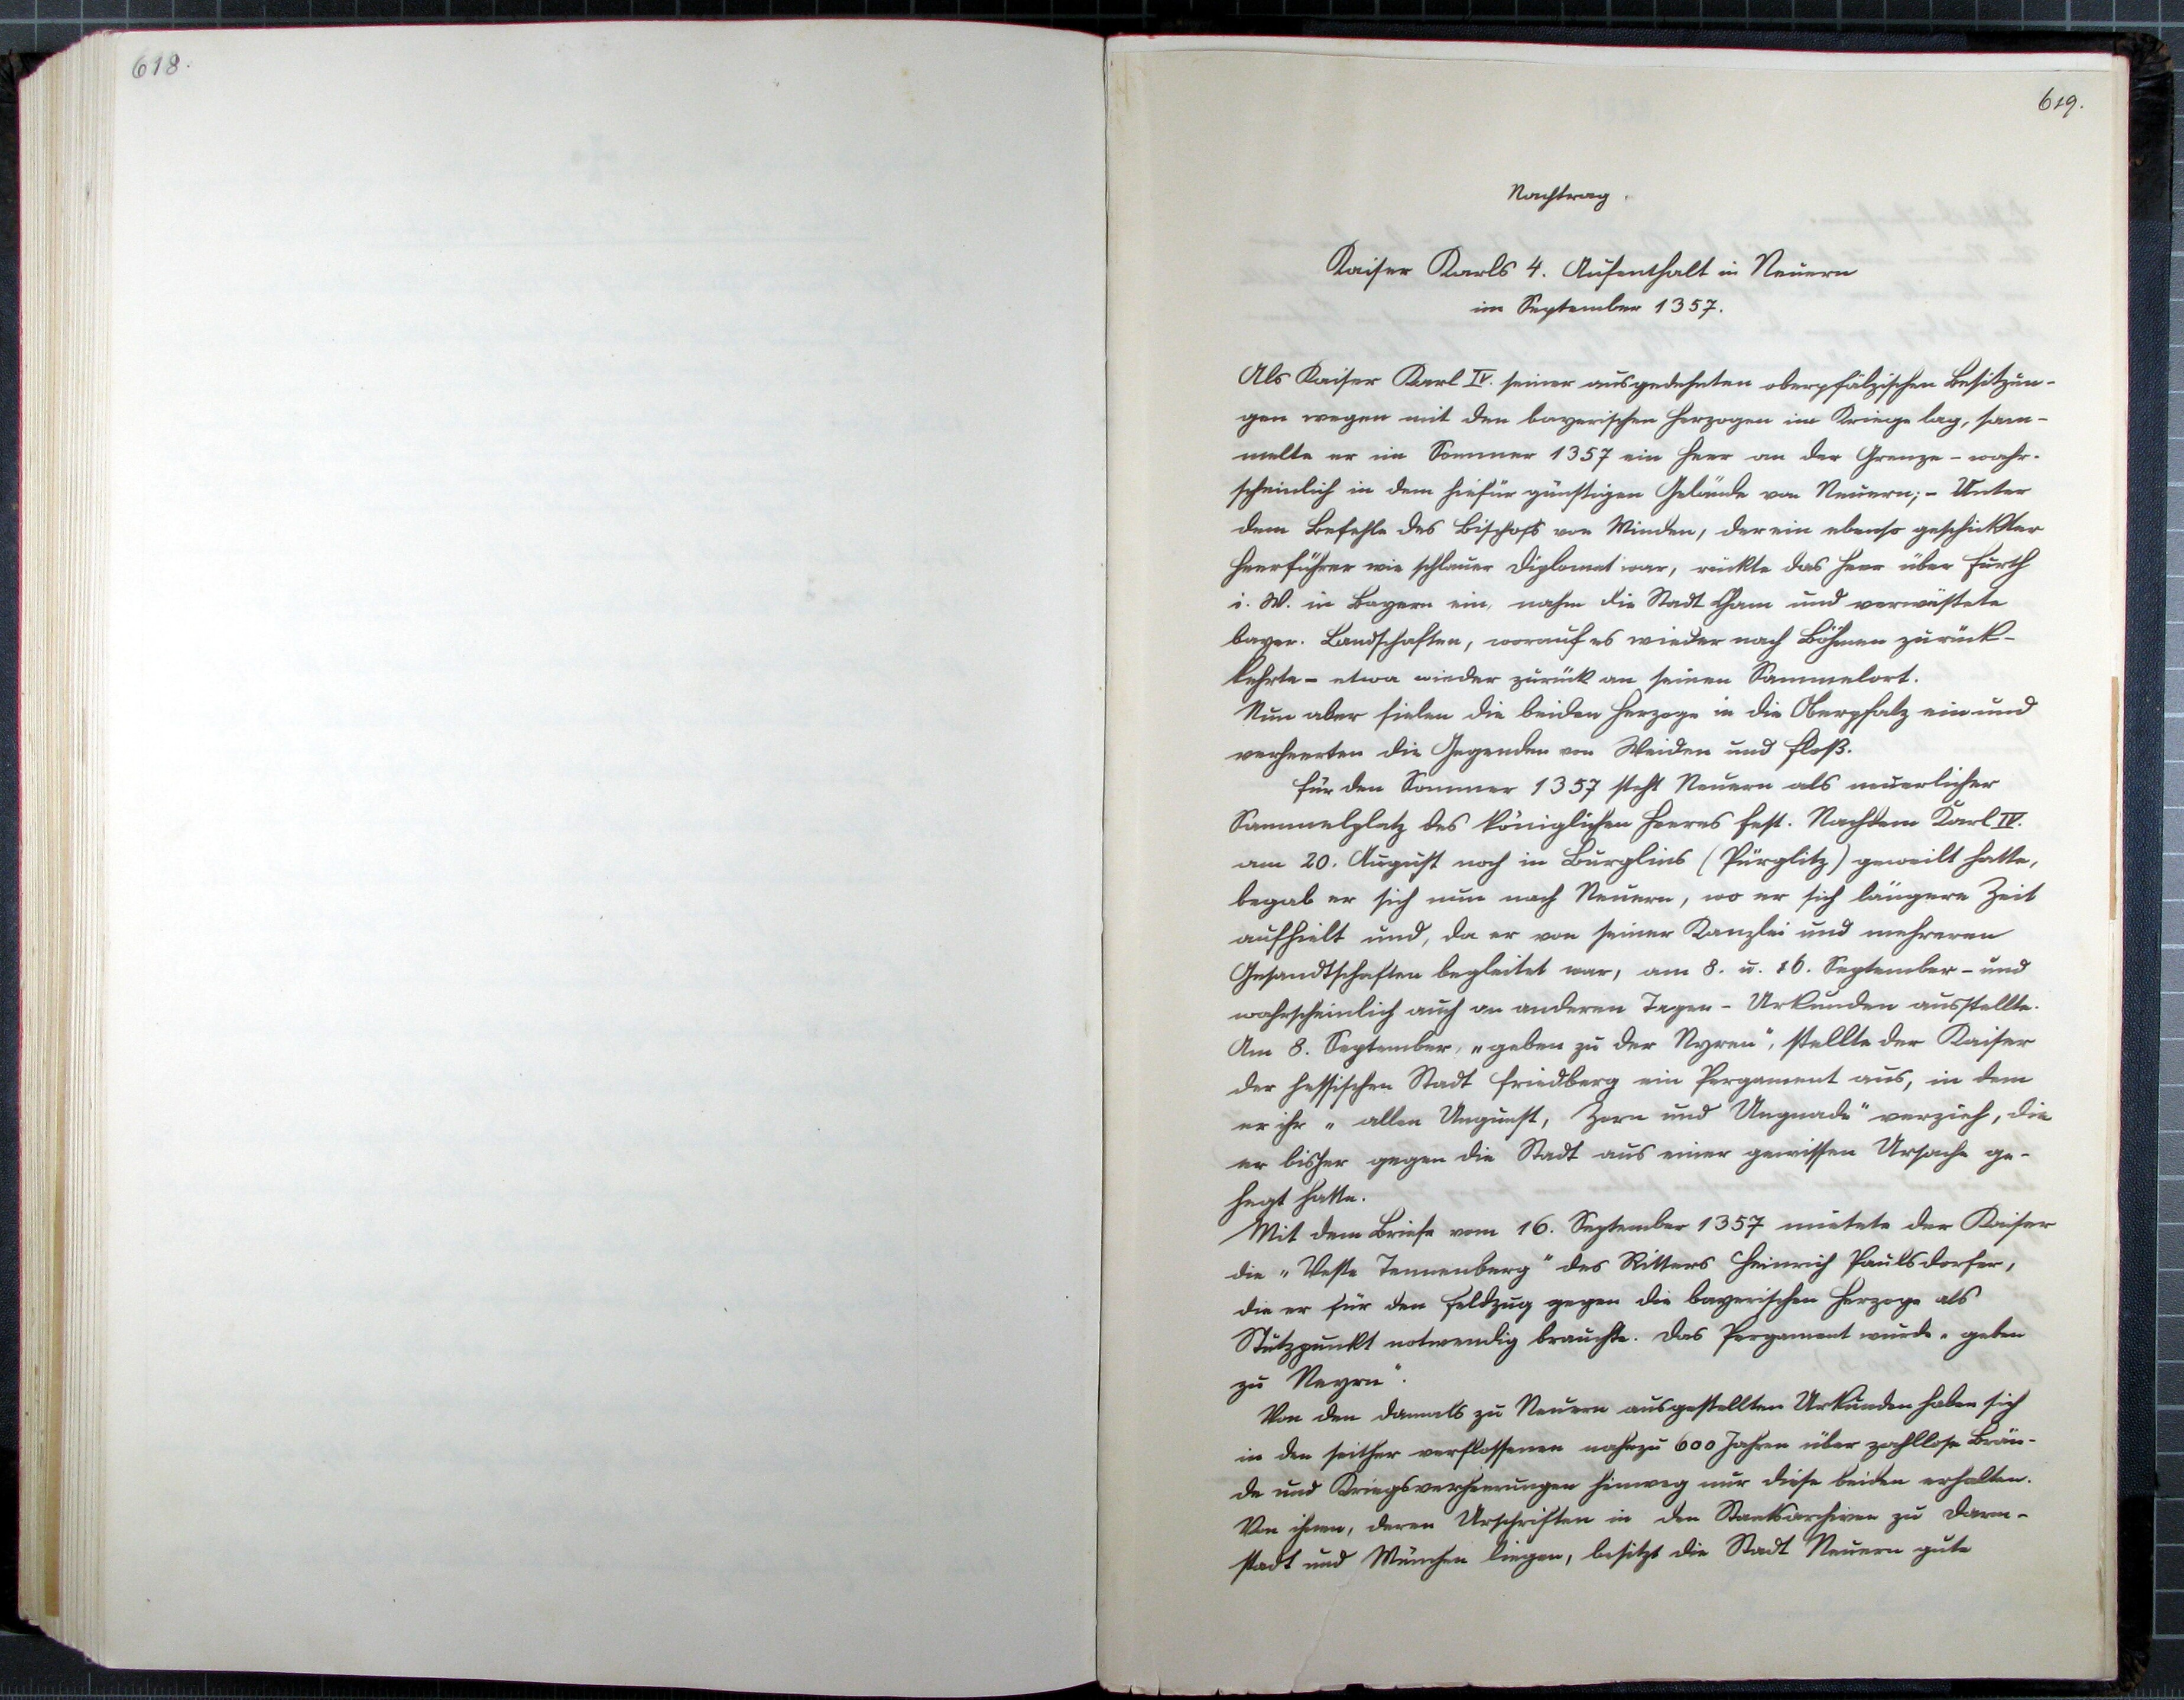 618.
619.
Nachtrag.
Kaiser Karls 4. Aufenthalt in Neuern
im September 1357.
Als Kaiser Karl IV. seiner ausgedehnten oberpfälzischen Besitzun-
gen wegen mit den bayerischen Herzogen im Kriege lag, sam-
melte er im Sommer 1357 ein Heer an der Grenze - wahr-
scheinlich in dem hiefür günstigen Gelände von Neuern; - Unter
dem Befehle des Bischofs von Minden, der ein ebenso geschickter
Heerführer wie schlauer Diplomat war, rückte das Heer über Furth
i. W. in Bayern ein, nahm die Stadt Cham und verwüstete
bayer. Landschaften, worauf es wieder nach Böhmen zurück-
kehrte - etwa wieder zurück an seinen Sammelort.
Nun aber fielen die beiden Herzoge in die Oberpfalz ein und
verheerten die Gegenden von Weiden und Floß.
Für den Sommer 1357 steht Neuern als neuerlicher
Sammelplatz des königlichen Heeres fest. Nachdem Karl IV.
am 20. August noch in Burglins (Pürglitz) geweilt hatte,
begab er sich nun nach Neuern, wo er sich längere Zeit
aufhielt und, da er von seiner Kanzlei und mehreren
Gesandtschaften begleitet war, am 8. u. 16. September - und
wahrscheinlich auch an anderen Tagen - Urkunden ausstellte.
Am 8. September, „geben zu der Nyren", stellte der Kaiser
der hessischen Stadt Friedberg ein Pergament aus, in dem
er ihr „allen Ungunst, Zorn und Ungnade" verzieh, die
er bisher gegen die Stadt aus einer gewissen Ursache ge-
hegt hatte.
Mit dem Briefe vom 16. September 1357 mietete der Kaiser
die „Veste Tennenberg" des Ritters Heinrich Paulsdorfer,
die er für den Feldzug gegen die bayerischen Herzoge als
Stützpunkt notwendig brauchte. Das Pergament wurde „geben
zu Neyrn".
Von den damals zu Neuern ausgestellten Urkunden haben sich
in den seither verflossenen nahezu 600 Jahren über zahllose Brän-
de und Kriegsverheerungen hinweg nur diese beiden erhalten.
Von ihnen, deren Urschriften in den Staatsarchiven zu Darm-
stadt und München liegen, besitzt die Stadt Neuern gute